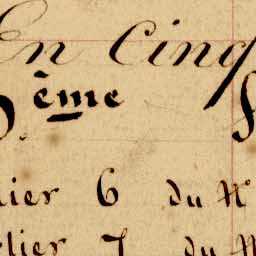 En Cinq
ème
ier 6 du N°
lier 7 du N